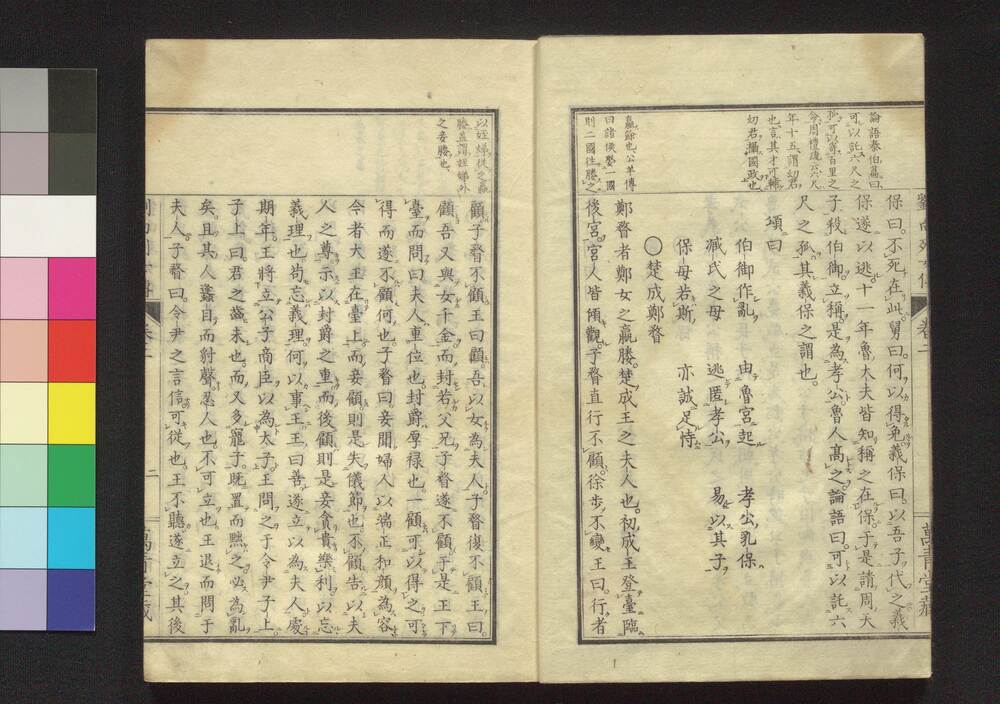 論語泰伯篇曰
可以託六尺之
孤可以寄百里之
命周禮疏云六尺
年十五謂幼君
也言其才可輔
幼君攝國政也
保曰不死在此舅曰何以得免義保曰以吾子代之義
保遂以逃十一年魯大夫皆知稱之在保于是請周天
子殺伯御立稱是為孝公魯人高之論語曰可以託六
尺之孤其義保之謂也
頌曰
伯御作亂 由魯宮起 孝公乳保
臧氏之母 逃匿孝公 易以其子
保母若斯 亦誠足恃
○楚成鄭瞀
嬴餘也公羊傳
曰諸侯娶一國
則二國往媵之
鄭瞀者鄭女之嬴媵楚成王之夫人也初成王登臺臨
後宮宮人皆傾觀子瞀直行不顧徐步不變王曰行者
以姪娣從之嬴
媵蓋謂姪娣外
之妾媵也
顧子瞀不顧王曰顧吾以女為夫人子瞀復不顧王曰
顧吾又與女千金而封若父兄子瞀遂不顧于是王下
臺而問曰夫人重位也封爵厚祿也一顧可以得之可
得而遂不顧何也子瞀曰妾聞婦人以端正和顏為容
今者大王在臺上而妾顧則是失儀節也不顧告以夫
人之尊示以封爵之重而後顧則是妾貪貴樂利以忘
義理也苟忘義理何以事王王曰善遂立以為夫人處
期年王將立公子商臣以為太子王問之于令尹子上
子上曰君之齒未也而又多寵子既置而黜之必為亂
矣且其人蠭目而豺聲忍人也不可立也王退而問于
夫人子瞀曰令尹之言信可從也王不聽遂立之其後
二
萬青堂藏